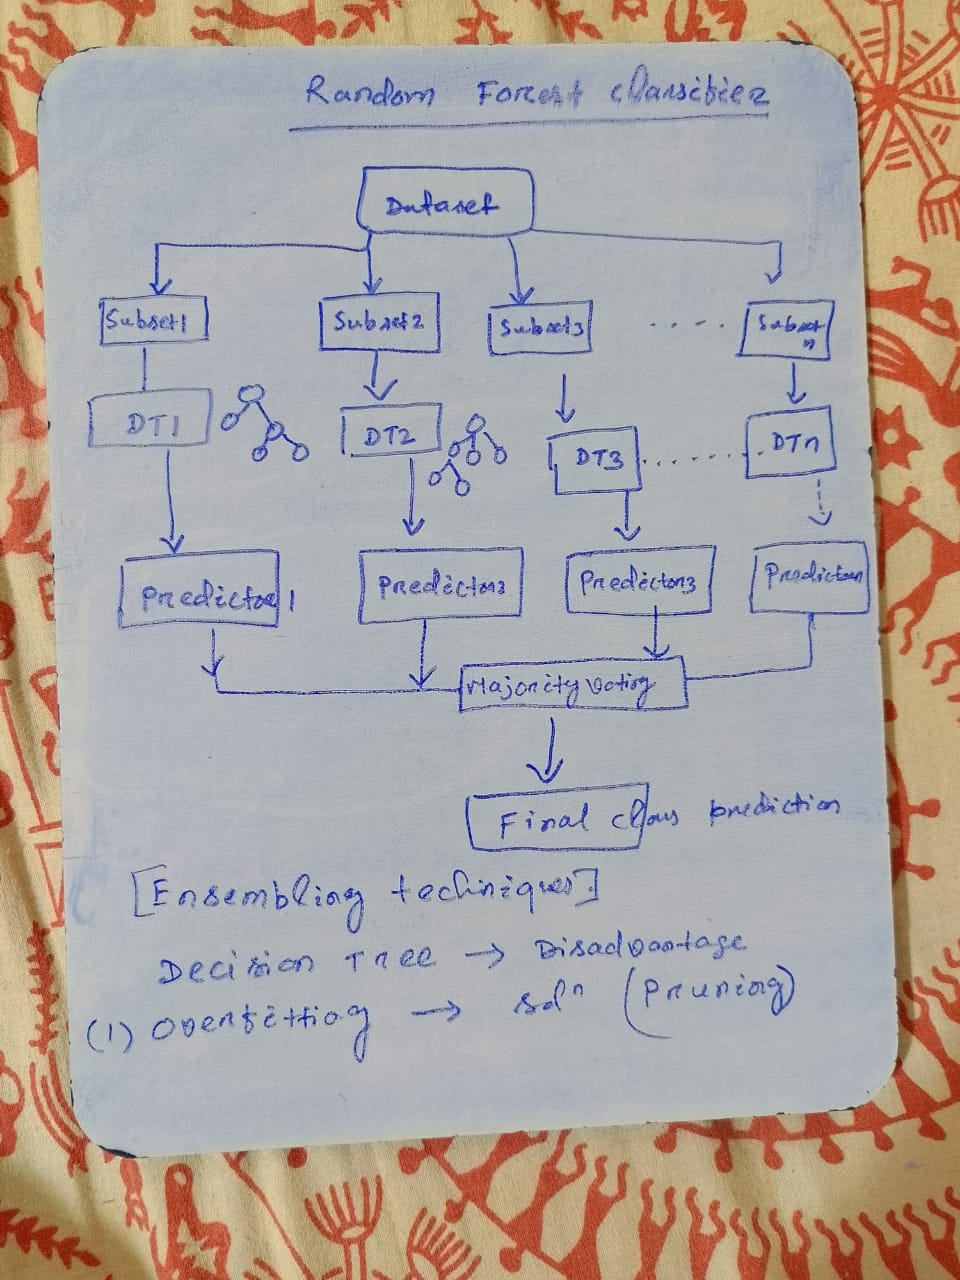 Random Forest classifier
Dataset
Subset1 Subset2 Subset3 ..... Subset n
DT1 DT2 DT3 ........ DTn
Predictor1 Predictor2 Predictor3 Predictorn
Majority Voting
Final class prediction
[Ensembling techniques]
Decision Tree → Disadvantage
(1) Overfitting → solⁿ (Pruning)